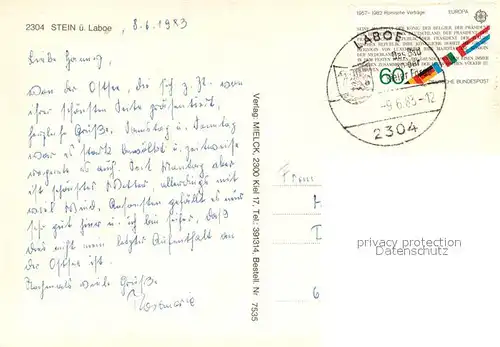 2304 STEIN ü. Laboe
8.6.1983
Liebe
von der Ostsee, die sich z. Zt. von
ihrer schönsten Seite präsentiert,
herzliche Grüße. Samstag u. Sonntag
war es stark bewölkt u. zeitweise
regnete es auch. Seit Montag aber
ist schönstes Wetter, allerdings mit
viel Wind. Ansonsten gefällt es mir
sehr gut hier u. ich bin sicher, daß
dies nicht mein letzter Aufenthalt an
der Ostsee ist.
Nochmals viele Grüße
Rosemarie
Verlag: MIELCK, 2300 Kiel 17, Tel.: 391314, Bestell. Nr. 7535
1957-1982 Römische Verträge EUROPA
60
DEUTSCHE BUNDESPOST
LABOE
Das Bad
der
-9.6.83-12
2304
privacy protection
Datenschutz